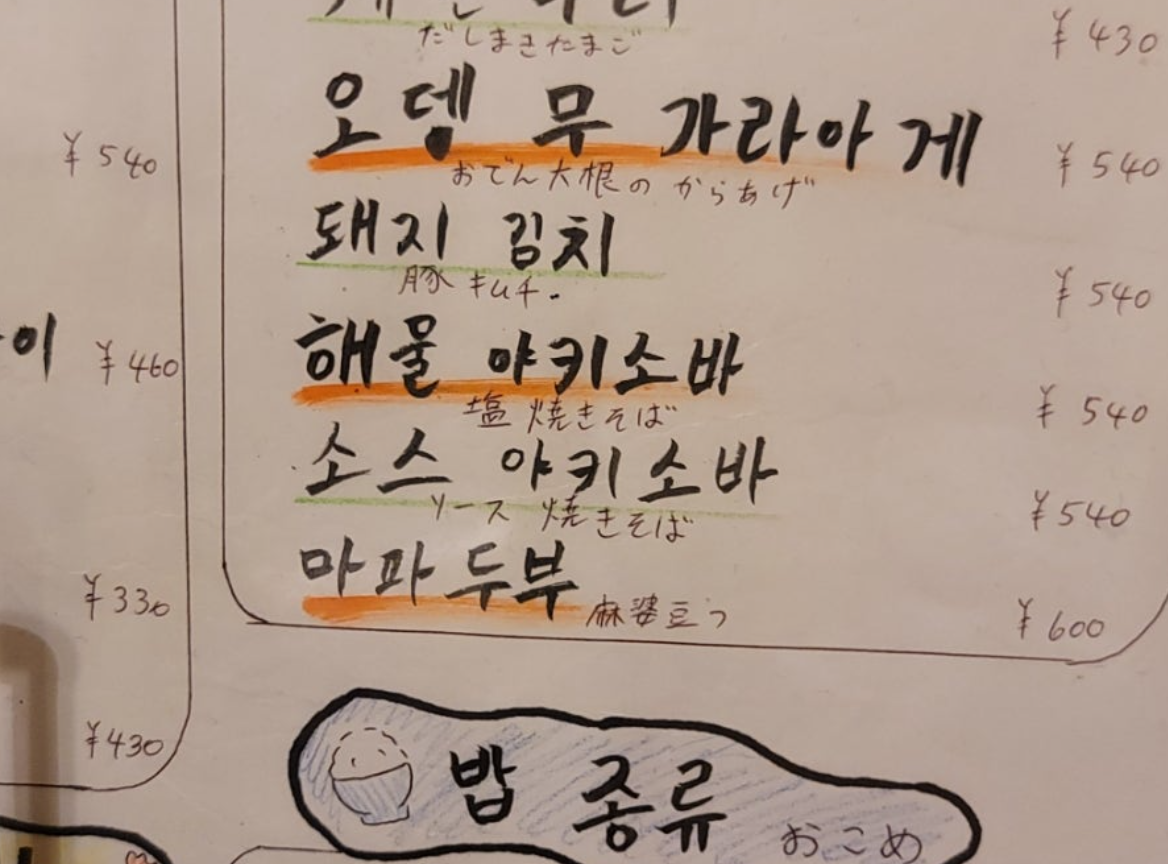 だしまきたまご ¥430
오뎅 무 가라아게 ¥540
おでん大根のからあげ
돼지 김치 ¥540
豚キムチ.
해물 야키소바 ¥540
塩焼きそば
소스 야키소바 ¥540
ソース焼きそば
마파두부 ¥600
麻婆豆フ
¥540
이 ¥460
¥330
¥430
밥 종류
おこめ